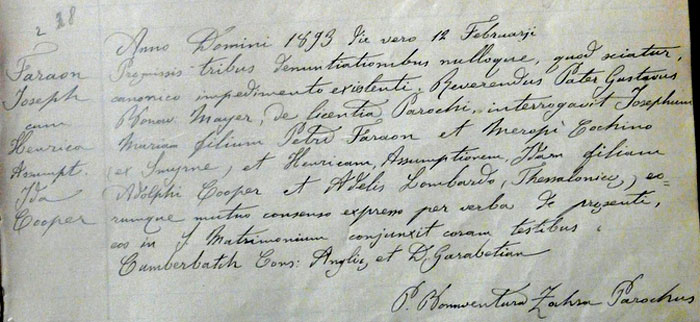 28
Faraon
Joseph
cum
Henrica
Assumpt.
Ida
Cooper
Anno Domini 1893 die vero 12 Februarji
Premissis tribus denuntiationibus nulloque, quod sciatur,
canonico impedimento existenti. Reverendus Pater Gustavus
Bonav. Mayer, de licentia Parochi, interrogavit Josephum
Mariam filium Petri Faraon et Meropi Cochino
(ex Smyrne, et Henricam, Assumptionem, Idam filiam
Adolphi Cooper et Adelis Lombardo, (Thessalonice,) eo-
rumque mutuo consenso expresso per verba de presenti,
eos in S. Matrimonium conjunxit coram testibus:
Cumberbatch Cons: Anglie, et D. Garabetian
P. Bonaventura Zahra Parochus